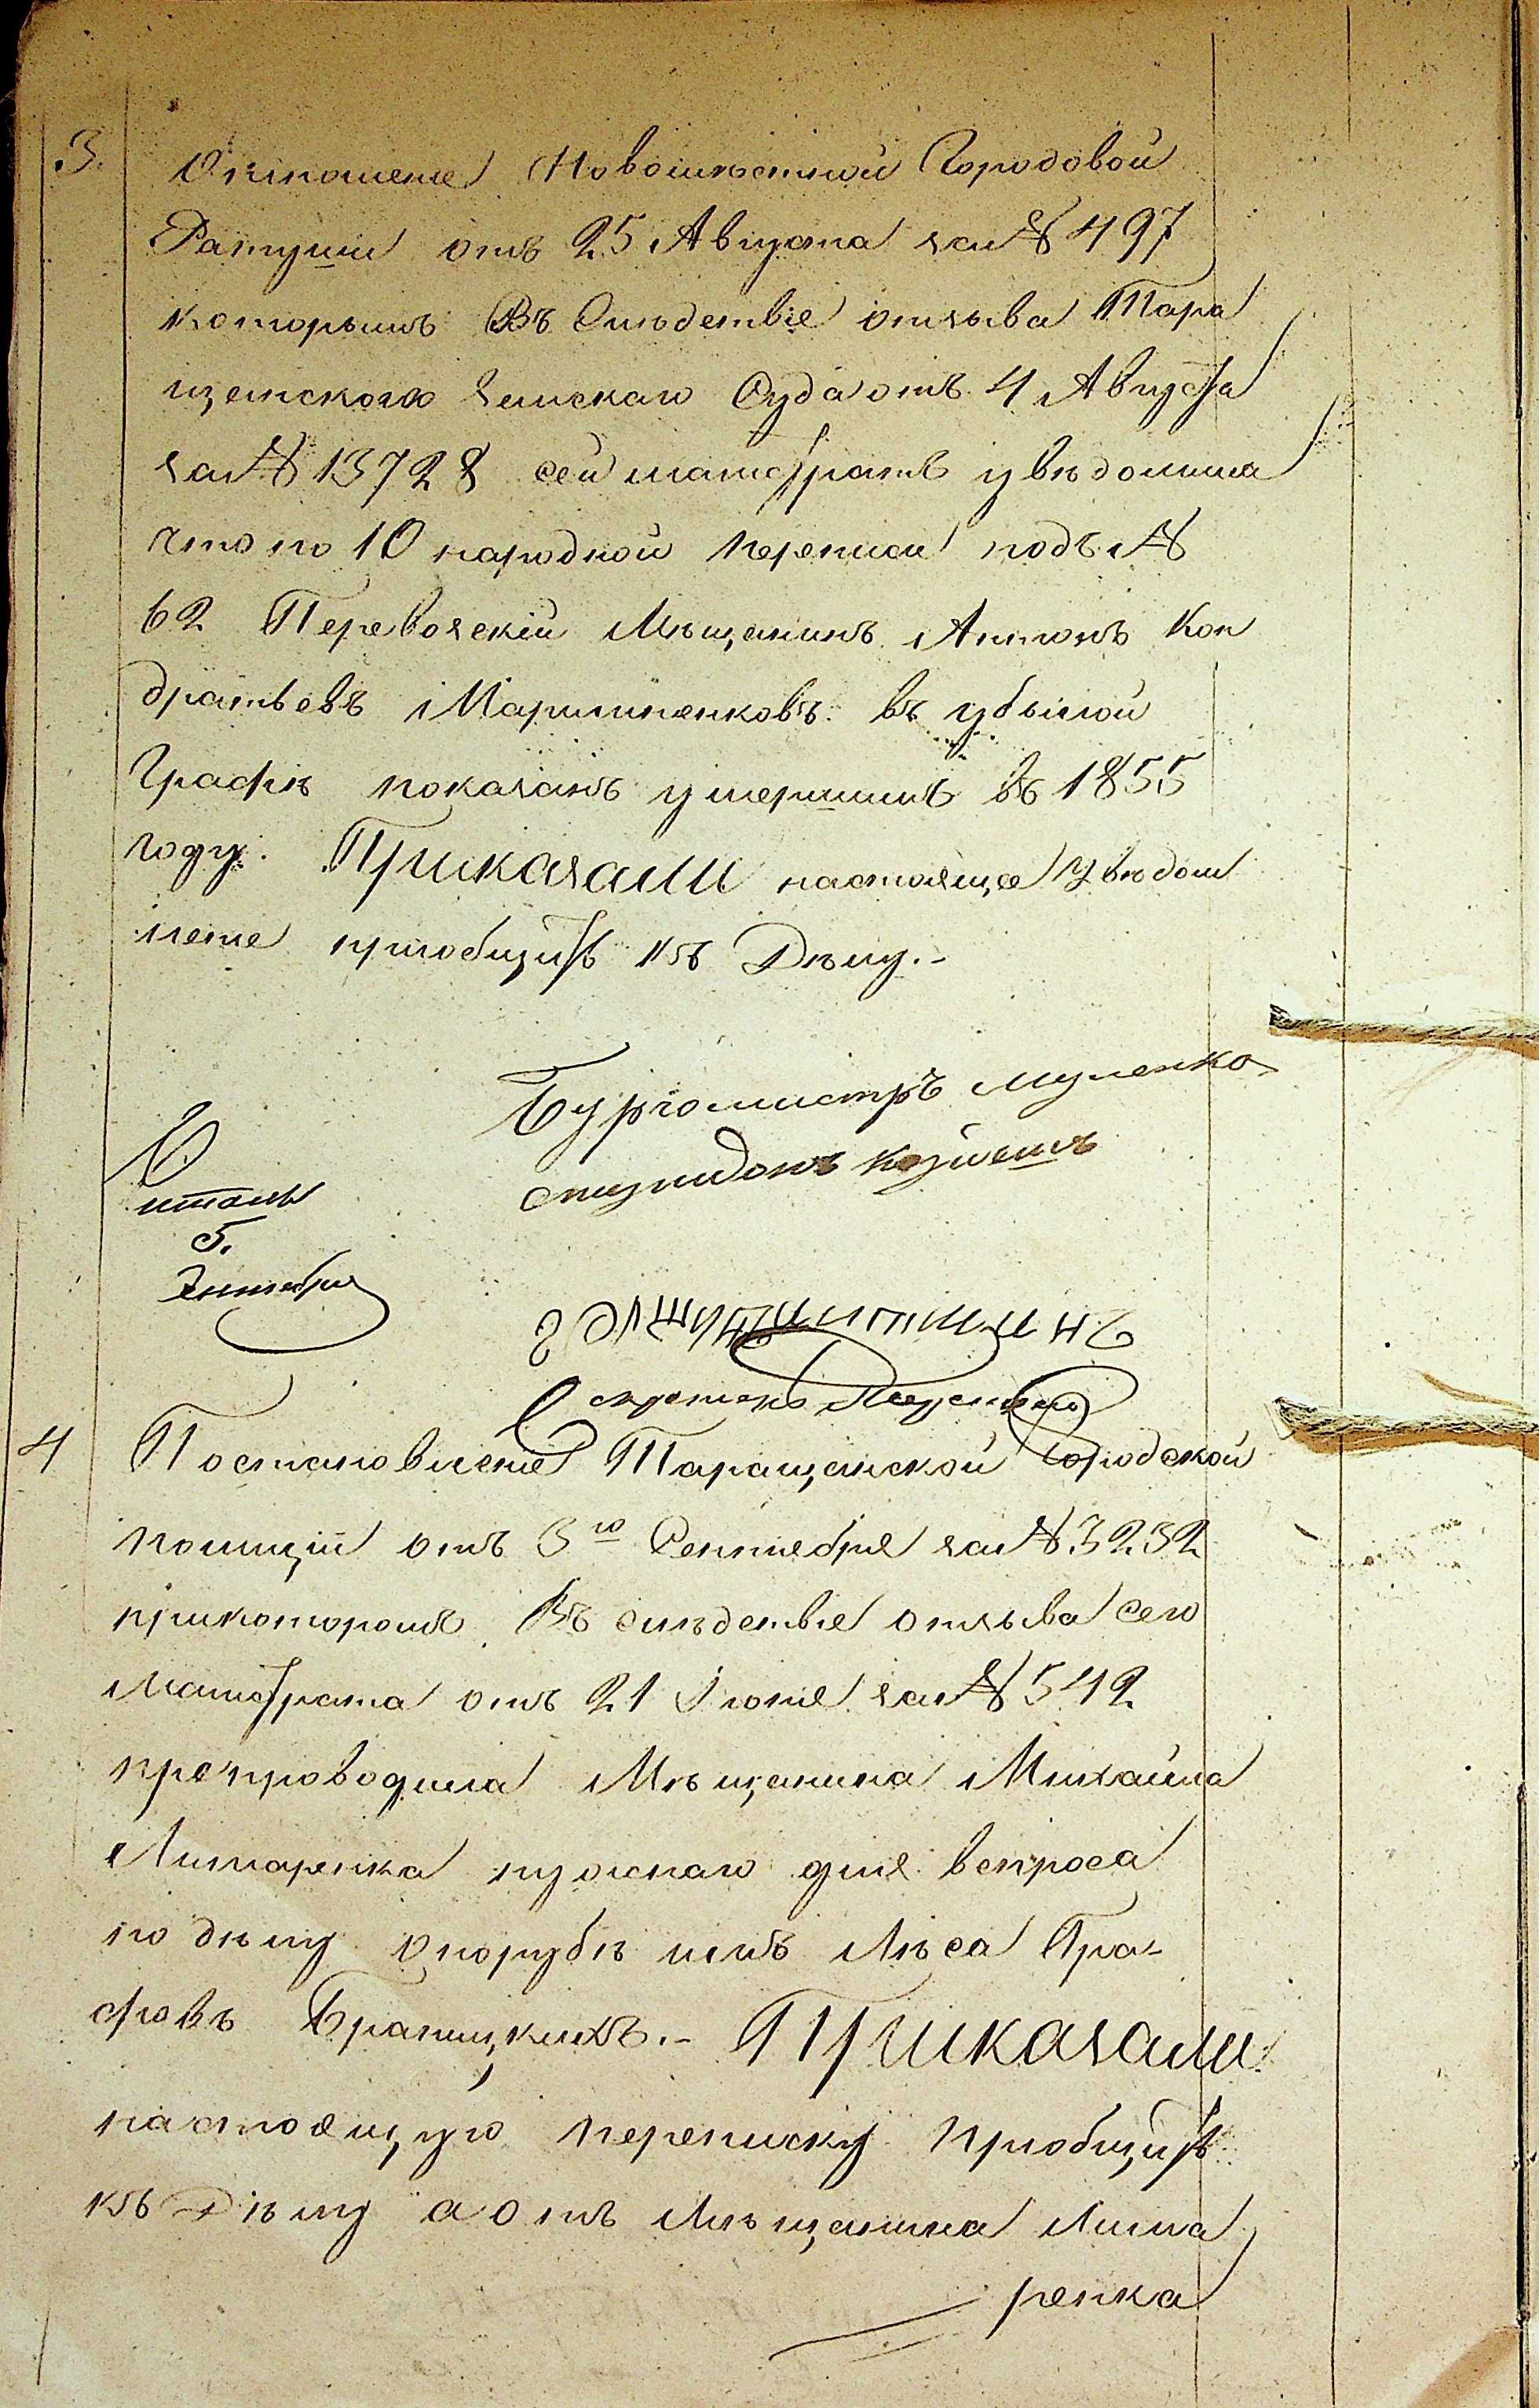 3.
Отношеніе Новомѣстной Городовой
Ратуши отъ 25 Августа за № 497
которымъ Въ Слѣдствіе отзыва Тара
щанского Земскаго Суда отъ 4 Августа
за № 13728 сей магистратъ увѣдомила
что по 10 народной переписи подъ №
62 Перевозскій Мѣщанинъ Антонъ Кон
дратьевъ Мартыненковъ въ убылой
Графѣ показанъ умершимъ въ 1855
году. Приказали настоящее увѣдом
леніе пріобщить къ Дѣлу.-
Бургомистръ
Читалъ
5.
Сентября
Секретарь
4
Постановленіе Таращанской Городской
полиціи отъ 3го Сентября за № 3232
прикоторомъ Въ слѣдствіе отзыва сего
магистрата отъ 21 Іюня за № 542
препроводила Мѣщанина Михайла
Литаренка нужнаго для вспроса
по дѣлу опорубкѣ имъ Лѣса Гра-
фовъ Браницкихъ.- Приказали
настоящую переписку пріобщить
къ Дѣлу а отъ Мѣщанина Лита
ренка